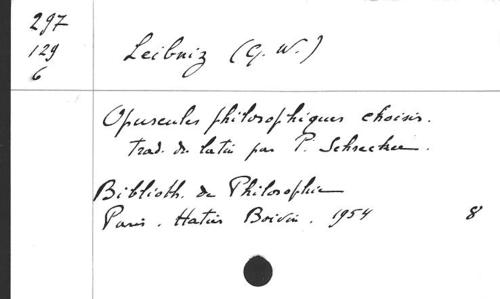 297
129
6
Leibniz (G. W.)
Opuscules philosophiques choisis.
trad. du latin par P. Schrecker.
Biblioth. de Philosophie
Paris. Hatier Boivin. 1954 8